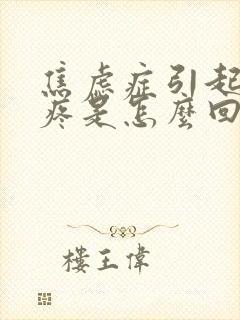 焦虑症引起
疼是怎麼回
樓王偉